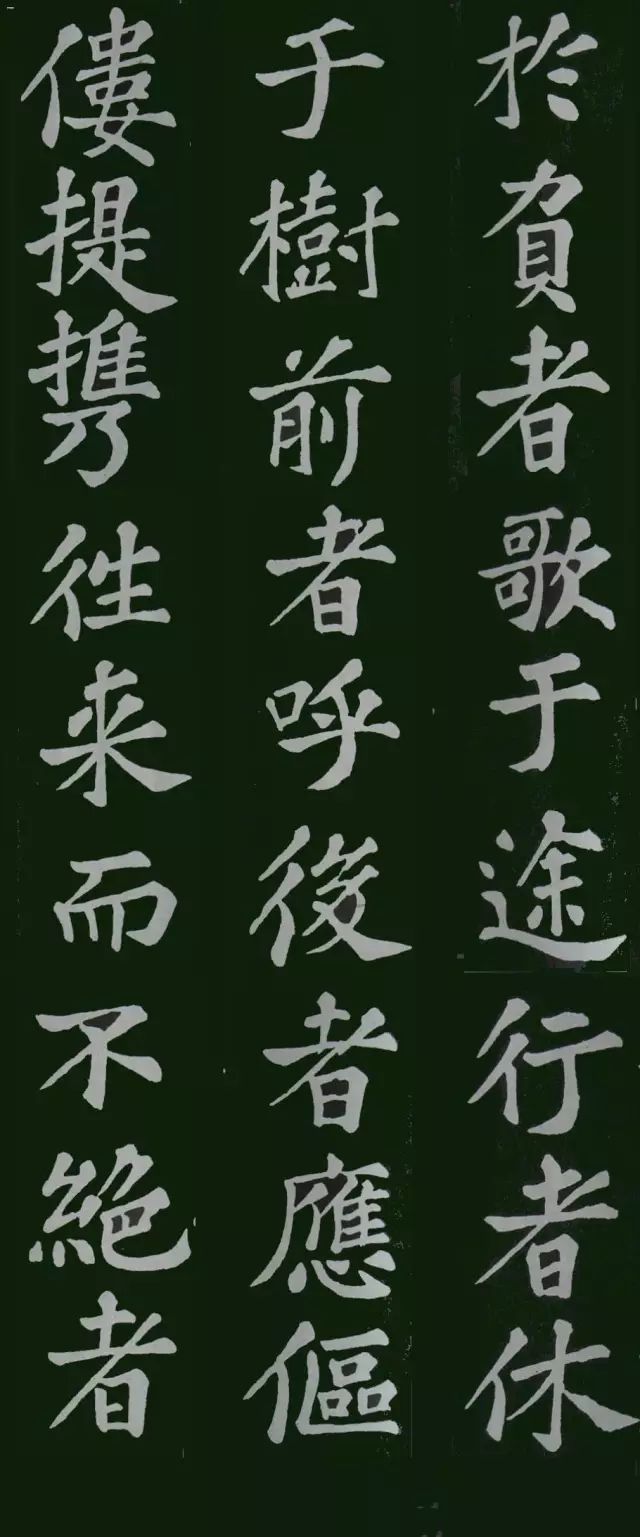 於負者歌于途行者休
于樹前者呼後者應傴
僂提攜徃来而不絶者